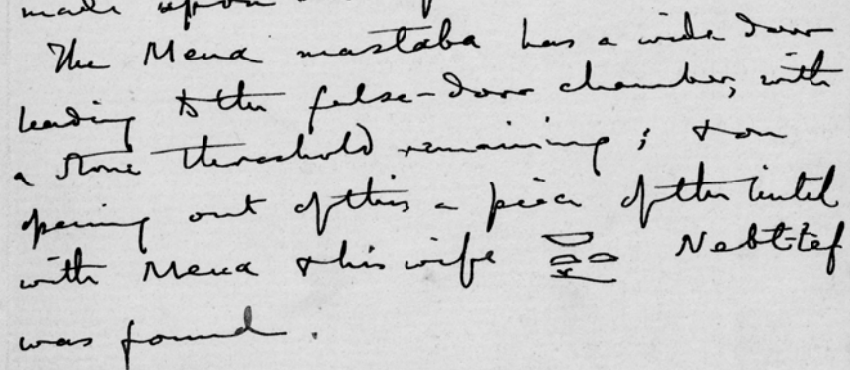 made upon
The Mena mastaba has a wide door
leading to the false-door chamber, with
a stone threshold remaining; & on
opening out of this a piece of the lintel
with Mena & his wife Nebt-tef
was found.